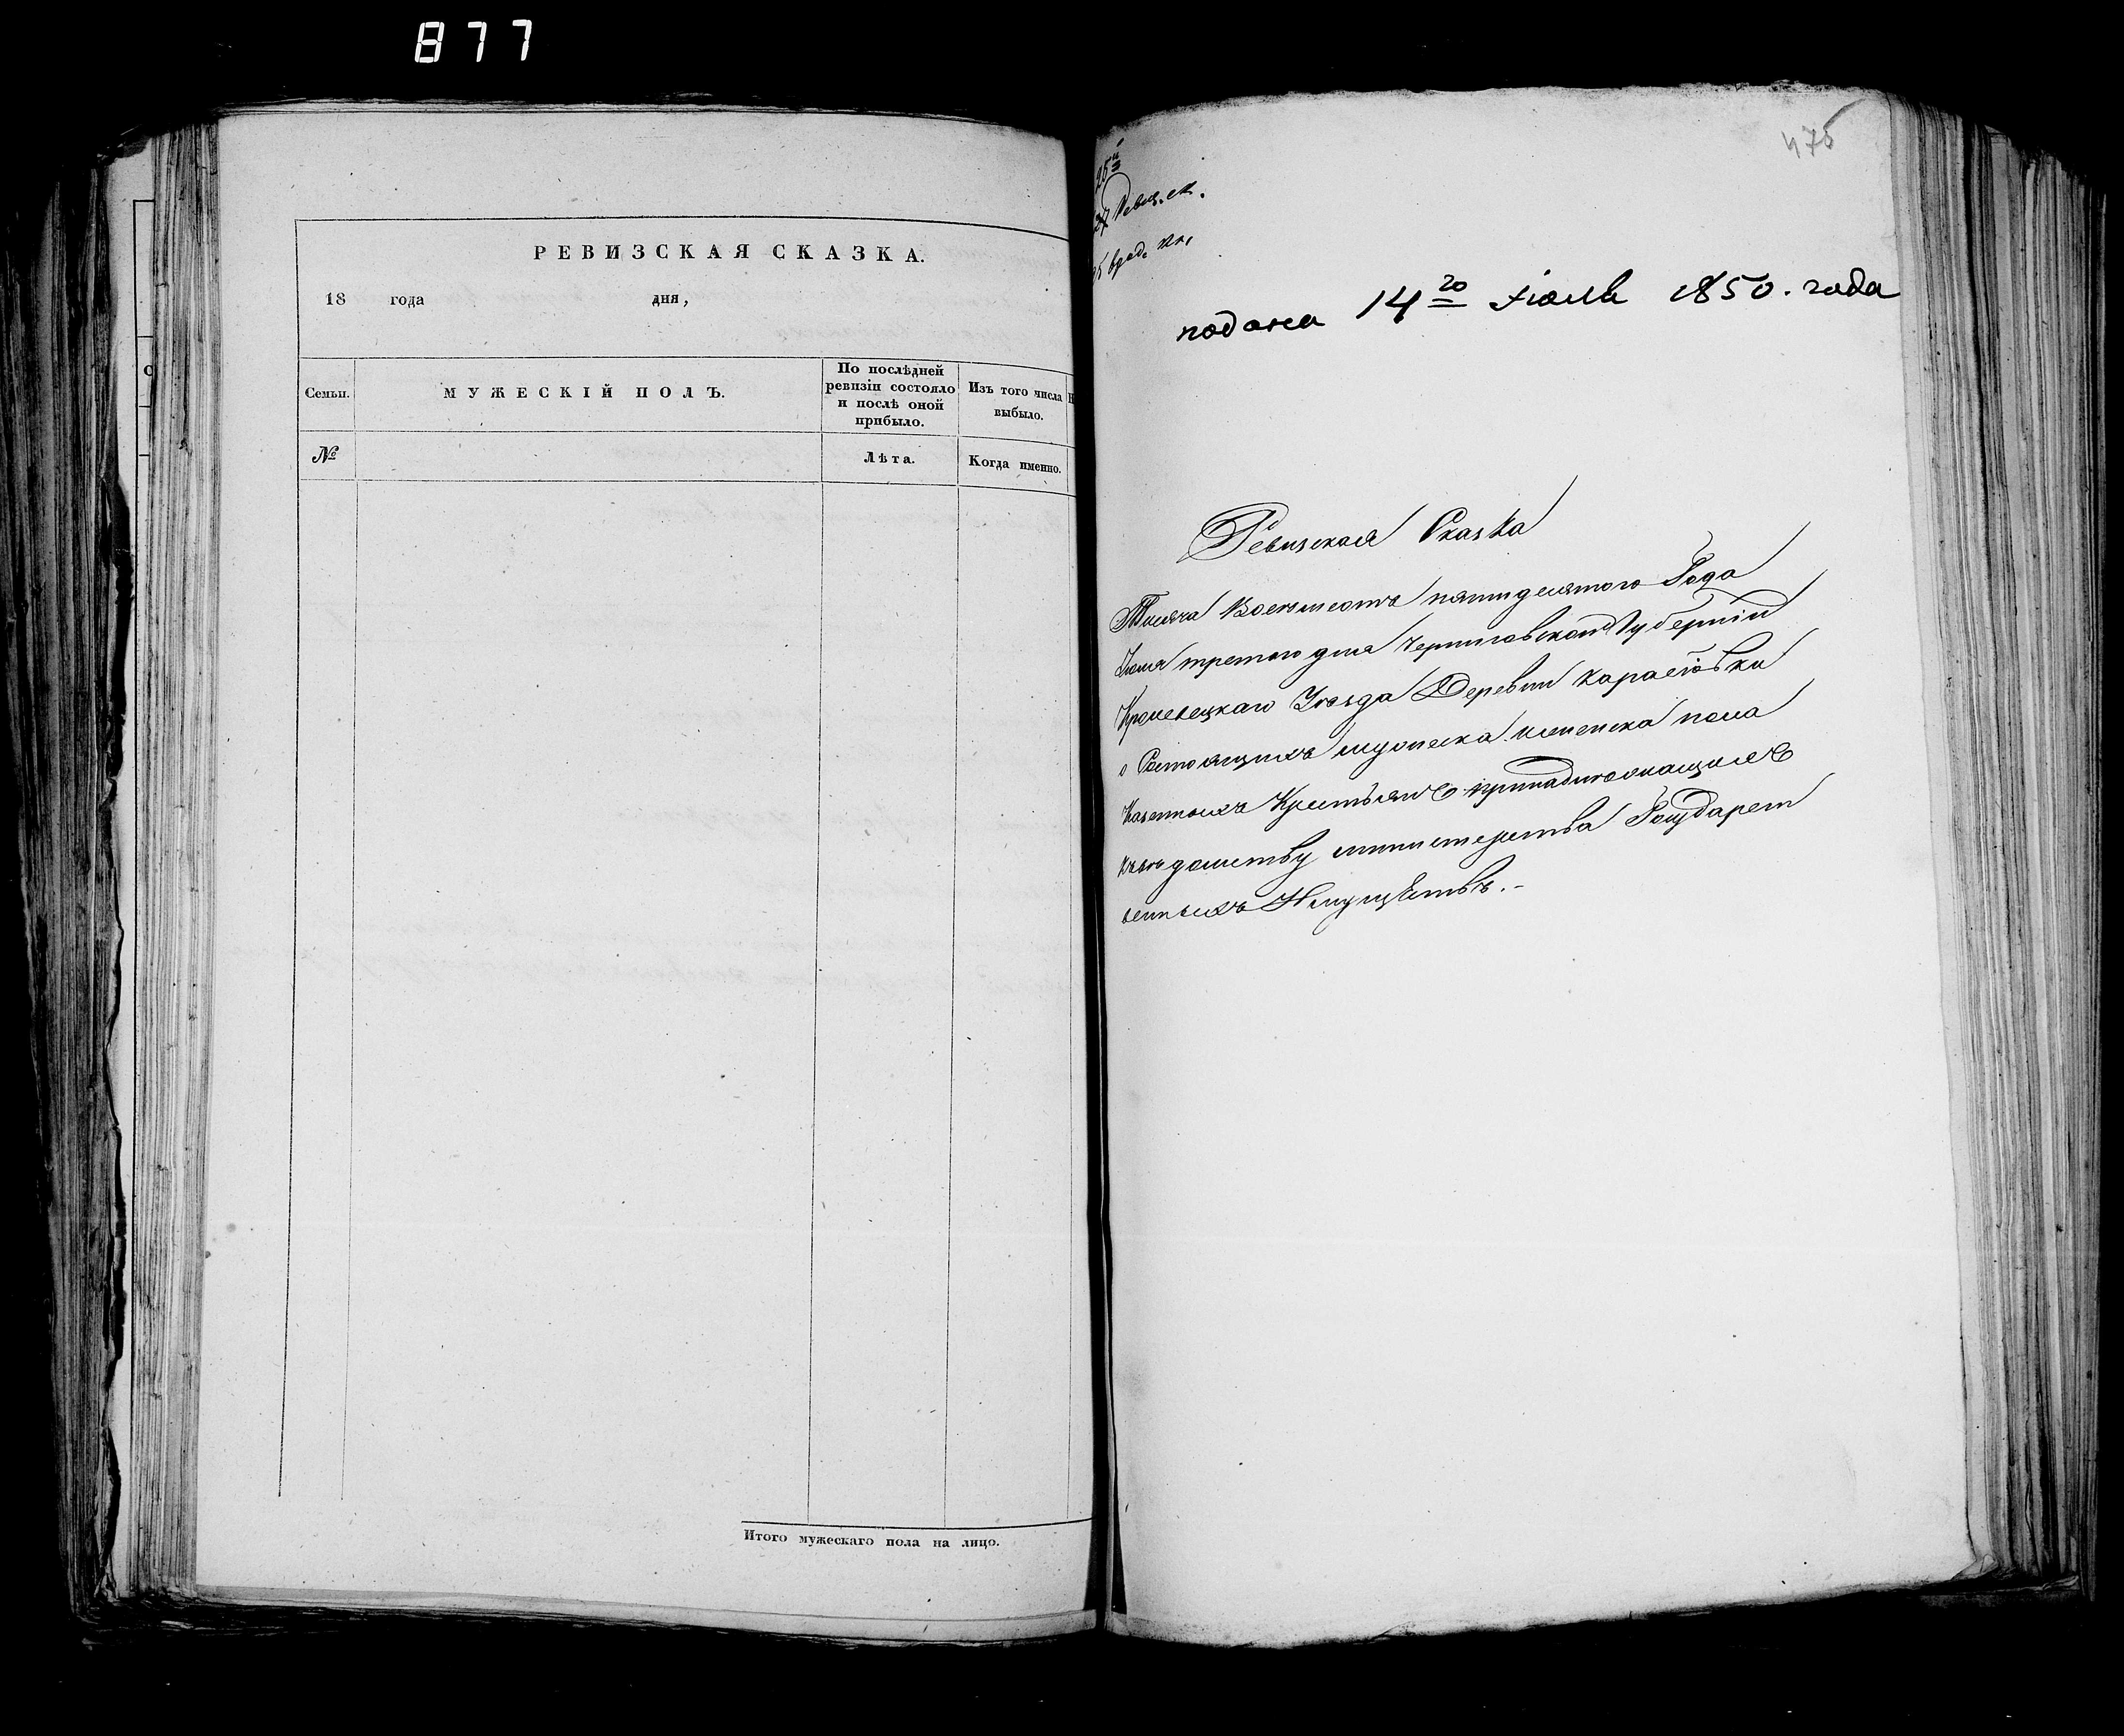 877
РЕВИЗСКАЯ СКАЗКА.
18 года дня,
Семьи.
МУЖЕСКІЙ ПОЛЪ.
По послѣдней ревизіи состояло и послѣ оной прибыло.
Изъ того числа выбыло.
№
Лѣта.
Когда именно.
Итого мужескаго пола на лицо.
475
25й
Ревиз. ск.
подана 14го Іюля 1850. года
Ревизская Сказка
Тысяча Восемьсотъ пятидесятого Года
Іюля третого дня Черниговской Губерніи
Кролевецкаго Уезда Деревни Карастовки
о Состоящихъ мужеска и женска пола
Казенныхъ Крестьянъ принадлежащихъ
къ ведомству министерства Государст
венныхъ Имуществъ.-